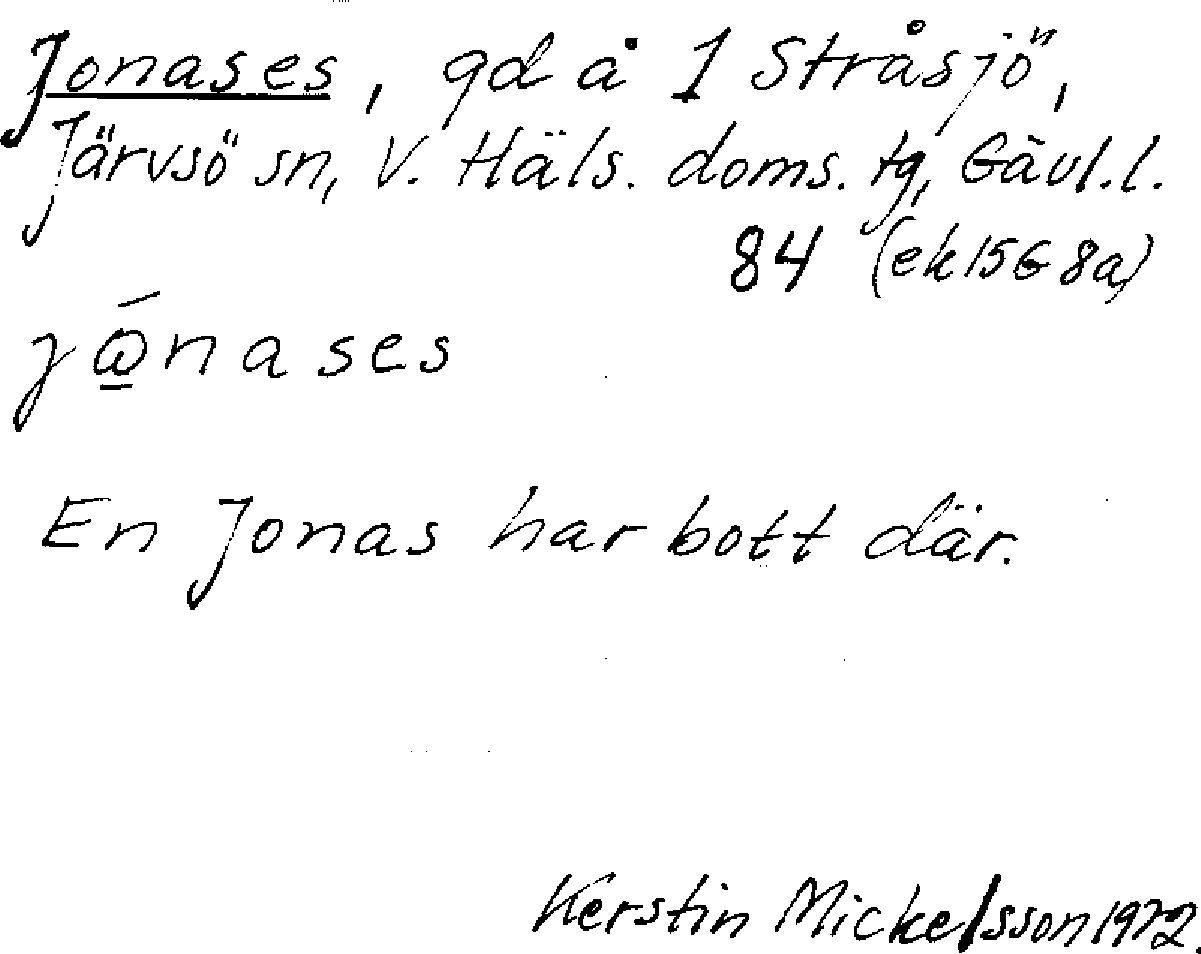 Jonases, gd å 1 Stråsjö,
Järvsö sn, V. Häls. doms. tg, Gävl.l.
84 (ek 15G 8a)
En Jonas har bott där.
Kerstin Mickelsson 1972.